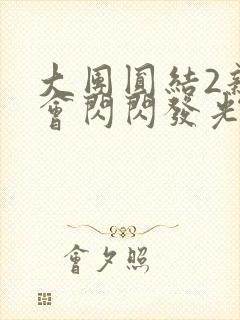 大團圓結2新
會閃閃發光
會夕照